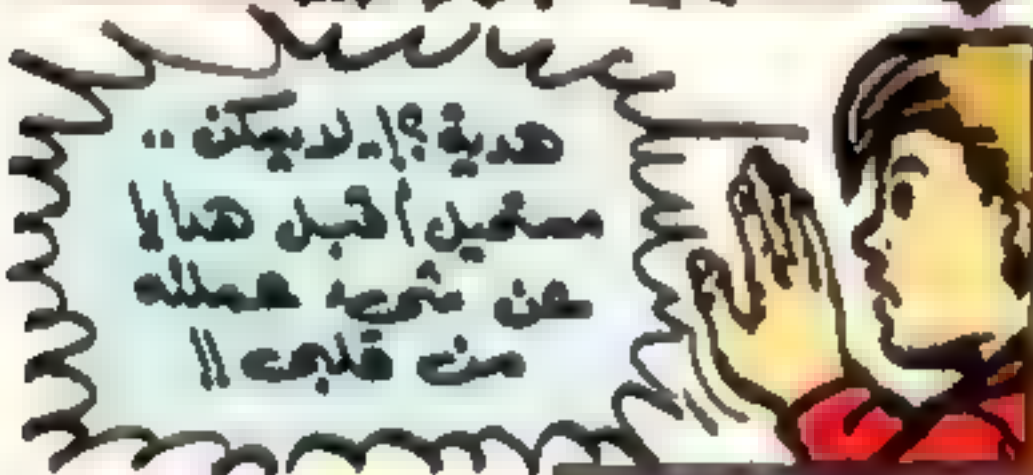 هدية ؟!.. لا يمكن ..
مستحيل أقبل هدايا
عن شيء عملته
من قلبي !!